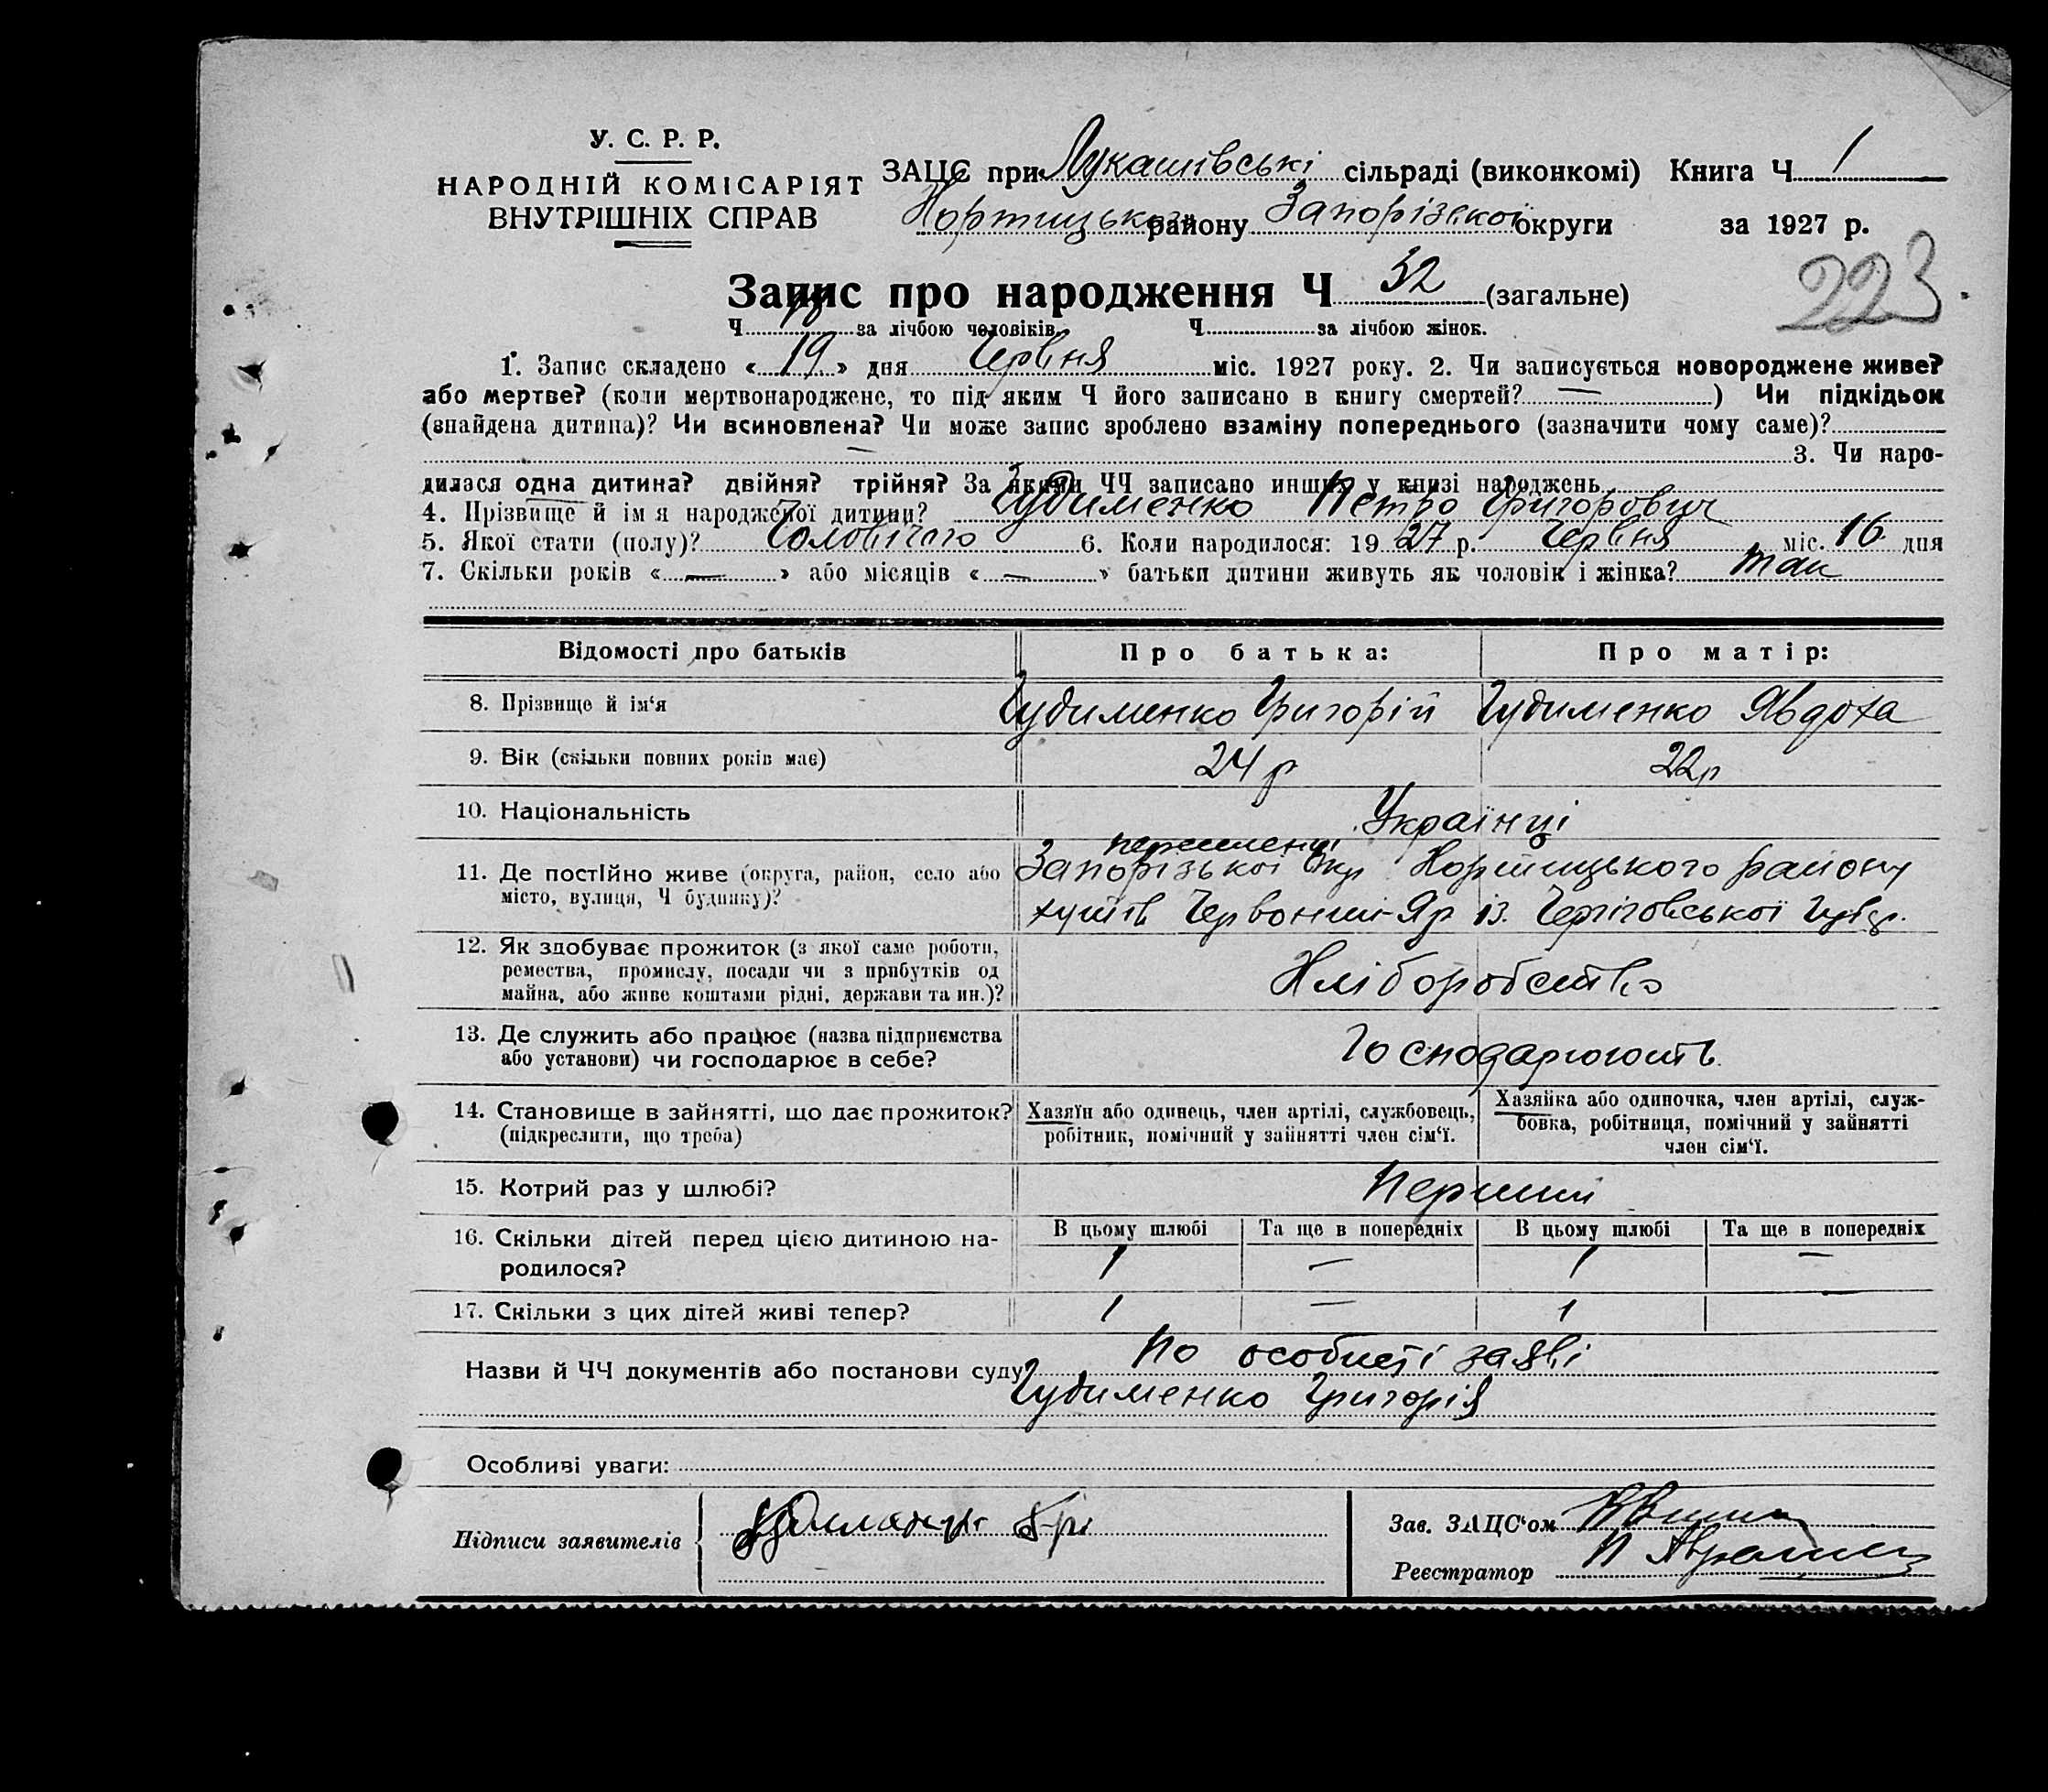 У. С. Р. Р.
НАРОДНІЙ КОМІСАРІЯТ
ВНУТРІШНІХ СПРАВ
ЗАЦС при Лукашівські сільраді (виконкомі) Книга Ч 1
Хортицької району Запорізької округи за 1927 р.
223
Запис про народження Ч 32 (загальне)
Ч за лічбою чоловіків Ч за лічбою жінок.
1. Запис складено « 19 » дня Червня міс. 1927 року. 2. Чи записується новороджене живе?
або мертве? (коли мертвонароджене, то під яким Ч його записано в книгу смертей? — ) Чи підкідьок
(знайдена дитина)? Чи всиновлена? Чи може запис зроблено взаміну попереднього (зазначити чому саме)?
— 3. Чи наро-
дилася одна дитина? двійня? трійня? За якими ЧЧ записано инших у книзі народжень
4. Прізвище й ім я народженої дитини? Гудименко Петро Григорович
5. Якої стати (полу)? Чоловічого 6. Коли народилося: 19 27 р. Червня міс. 16 дня
7. Скільки років « — » або місяців « — » батьки дитини живуть як чоловік і жінка? так
Відомості про батьків Про батька: Про матір:
8. Прізвище й ім‘я Гудименко Григорій Гудименко Явдоха
9. Вік (скільки повних років має) 24 р 22р
10. Національність Українці
переселенці
11. Де постійно живе (округа, район, село або Запорізької Окр Хортицького району
місто, вулиця, Ч будинку)? хутів Червоний-Яр із Чернігівської Губер.
12. Як здобуває прожиток (з якої саме роботи,
ремества, промислу, посади чи з прибутків од
майна, або живе коштами рідні, держави та ин.)? Хліборобство
13. Де служить або працює (назва підприємства
або установи) чи господарює в себе? Господарюють
14. Становище в зайнятті, що дає прожиток? (підкреслити, що треба)
Хазяїн або одинець, член артілі, службовець,
робітник, помічний у зайнятті член сім‘ї.
Хазяйка або одиночка, член артілі, служ-
бовка, робітниця, помічний у зайнятті
член сім‘ї.
15. Котрий раз у шлюбі? Перший
В цьому шлюбі Та ще в попередніх В цьому шлюбі Та ще в попередніх
16. Скільки дітей перед цією дитиною на-
родилося? 1 — 1 —
17. Скільки з цих дітей живі тепер? 1 — 1 —
Назви й ЧЧ документів або постанови суду По особисті заяві
Гудименко Григорія
Особливі уваги:
Підписи заявителів
Зав. ЗАЦС‘ом
Реєстратор